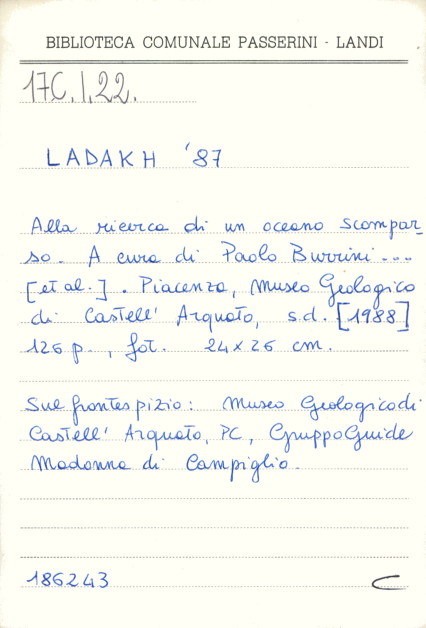 BIBLIOTECA COMUNALE PASSERINI - LANDI
17C.I.22.
LADAKH '87
Alla ricerca di un oceano scompar-
so. A cura di Paolo Burrini ...
[et al.]. Piacenza, Museo Geologico
di Castell' Arquato, s.d. [1988]
126 p., fot. 24x26 cm.
Sul frontespizio: Museo Geologico di
Castell' Arquato, PC, Gruppo Guide
Madonna di Campiglio.
186243
C